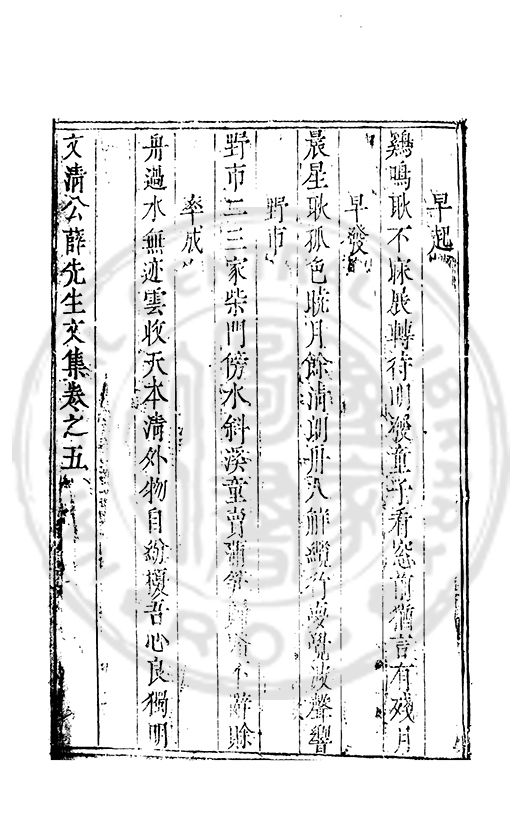 早起
鷄鳴耿不寐展轉待明發童子看窓前猶言有殘月
早發
晨星耿孤色曉月餘清朗舟人解纜行夢覺波聲響
野市
野市二三家柴門傍水斜溪童賣不辭賖
率成
舟過水無迹雲收天本清外物自紛擾吾心良獨明
文清公薛先生文集卷之五